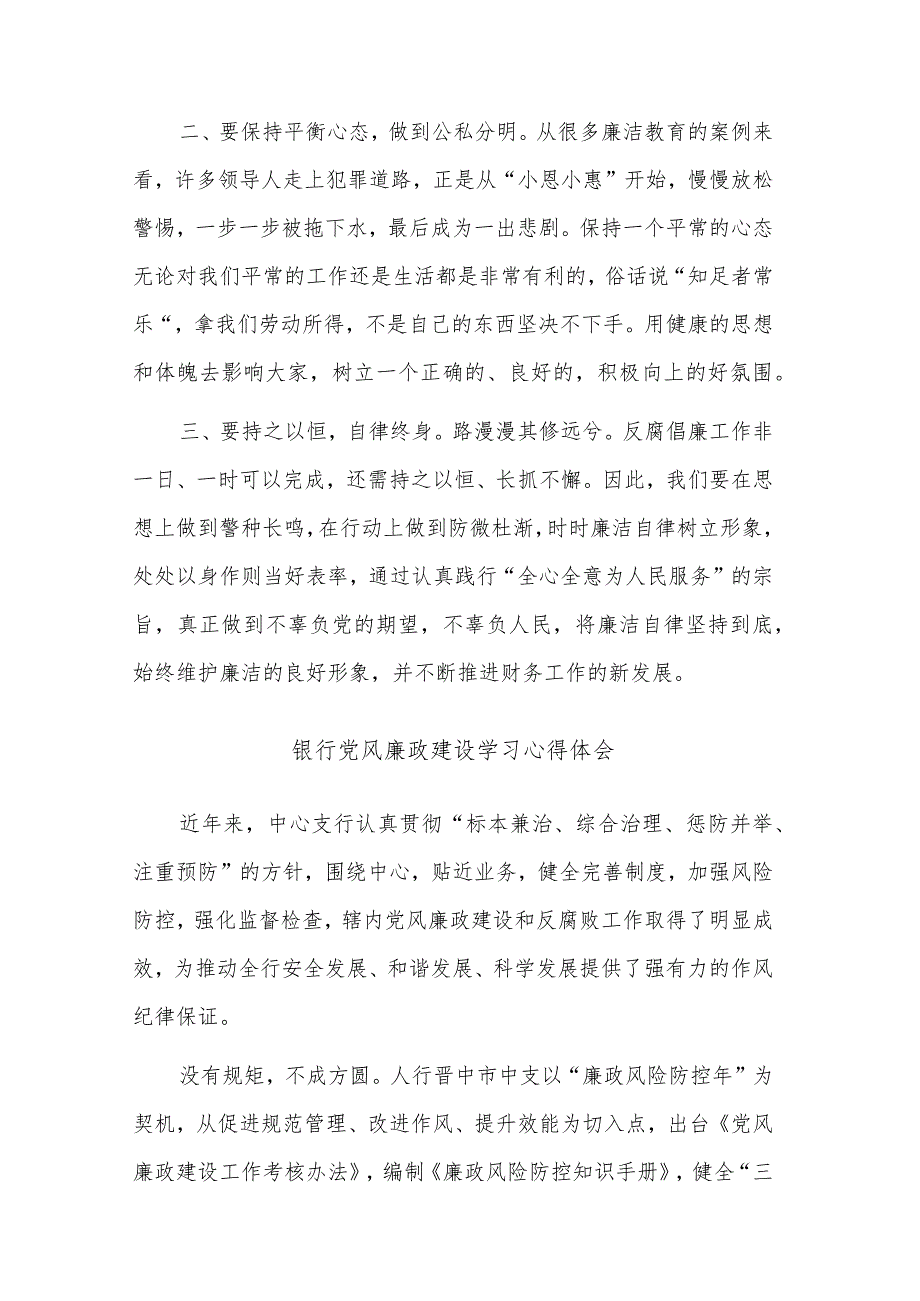 二、要保持平衡心态，做到公私分明。从很多廉洁教育的案例来
看，许多领导人走上犯罪道路，正是从“小恩小惠”开始，慢慢放松
警惕，一步一步被拖下水，最后成为一出悲剧。保持一个平常的心态
无论对我们平常的工作还是生活都是非常有利的，俗话说“知足者常
乐“，拿我们劳动所得，不是自己的东西坚决不下手。用健康的思想
和体魄去影响大家，树立一个正确的、良好的，积极向上的好氛围。
三、要持之以恒，自律终身。路漫漫其修远兮。反腐倡廉工作非
一日、一时可以完成，还需持之以恒、长抓不懈。因此，我们要在思
想上做到警种长鸣，在行动上做到防微杜渐，时时廉洁自律树立形象，
处处以身作则当好表率，通过认真践行“全心全意为人民服务”的宗
旨，真正做到不辜负党的期望，不辜负人民，将廉洁自律坚持到底，
始终维护廉洁的良好形象，并不断推进财务工作的新发展。
银行党风廉政建设学习心得体会
近年来，中心支行认真贯彻“标本兼治、综合治理、惩防并举、
注重预防”的方针，围绕中心，贴近业务，健全完善制度，加强风险
防控，强化监督检查，辖内党风廉政建设和反腐败工作取得了明显成
效，为推动全行安全发展、和谐发展、科学发展提供了强有力的作风
纪律保证。
没有规矩，不成方圆。人行晋中市中支以“廉政风险防控年”为
契机，从促进规范管理、改进作风、提升效能为切入点，出台《党风
廉政建设工作考核办法》，编制《廉政风险防控知识手册》，健全“三